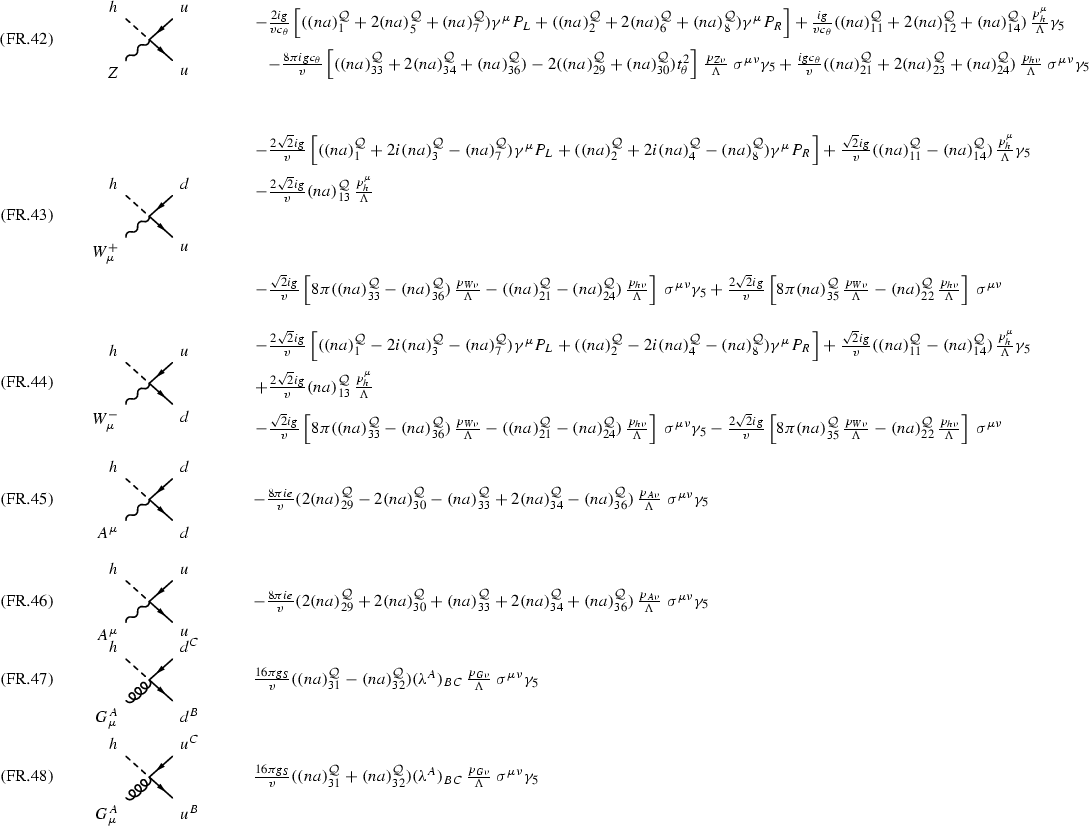 (FR.42) h u Z u
$-\frac{2ig}{vc_\theta}\left[((na)_1^{\mathcal{Q}} + 2(na)_5^{\mathcal{Q}} + (na)_7^{\mathcal{Q}})\gamma^\mu P_L + ((na)_2^{\mathcal{Q}} + 2(na)_6^{\mathcal{Q}} + (na)_8^{\mathcal{Q}})\gamma^\mu P_R\right] + \frac{ig}{vc_\theta}((na)_{11}^{\mathcal{Q}} + 2(na)_{12}^{\mathcal{Q}} + (na)_{14}^{\mathcal{Q}})\frac{p_h^\mu}{\Lambda}\gamma_5$
$-\frac{8\pi igc_\theta}{v}\left[((na)_{33}^{\mathcal{Q}} + 2(na)_{34}^{\mathcal{Q}} + (na)_{36}^{\mathcal{Q}}) - 2((na)_{29}^{\mathcal{Q}} + (na)_{30}^{\mathcal{Q}})t_\theta^2\right]\frac{p_{Z\nu}}{\Lambda}\sigma^{\mu\nu}\gamma_5 + \frac{igc_\theta}{v}((na)_{21}^{\mathcal{Q}} + 2(na)_{23}^{\mathcal{Q}} + (na)_{24}^{\mathcal{Q}})\frac{p_{h\nu}}{\Lambda}\sigma^{\mu\nu}\gamma_5$
(FR.43) h d $W_\mu^+$ u
$-\frac{2\sqrt{2}ig}{v}\left[((na)_1^{\mathcal{Q}} + 2i(na)_3^{\mathcal{Q}} - (na)_7^{\mathcal{Q}})\gamma^\mu P_L + ((na)_2^{\mathcal{Q}} + 2i(na)_4^{\mathcal{Q}} - (na)_8^{\mathcal{Q}})\gamma^\mu P_R\right] + \frac{\sqrt{2}ig}{v}((na)_{11}^{\mathcal{Q}} - (na)_{14}^{\mathcal{Q}})\frac{p_h^\mu}{\Lambda}\gamma_5$
$-\frac{2\sqrt{2}ig}{v}(na)_{13}^{\mathcal{Q}}\frac{p_h^\mu}{\Lambda}$
$-\frac{\sqrt{2}ig}{v}\left[8\pi((na)_{33}^{\mathcal{Q}} - (na)_{36}^{\mathcal{Q}})\frac{p_{W\nu}}{\Lambda} - ((na)_{21}^{\mathcal{Q}} - (na)_{24}^{\mathcal{Q}})\frac{p_{h\nu}}{\Lambda}\right]\sigma^{\mu\nu}\gamma_5 + \frac{2\sqrt{2}ig}{v}\left[8\pi(na)_{35}^{\mathcal{Q}}\frac{p_{W\nu}}{\Lambda} - (na)_{22}^{\mathcal{Q}}\frac{p_{h\nu}}{\Lambda}\right]\sigma^{\mu\nu}$
(FR.44) h u $W_\mu^-$ d
$-\frac{2\sqrt{2}ig}{v}\left[((na)_1^{\mathcal{Q}} - 2i(na)_3^{\mathcal{Q}} - (na)_7^{\mathcal{Q}})\gamma^\mu P_L + ((na)_2^{\mathcal{Q}} - 2i(na)_4^{\mathcal{Q}} - (na)_8^{\mathcal{Q}})\gamma^\mu P_R\right] + \frac{\sqrt{2}ig}{v}((na)_{11}^{\mathcal{Q}} - (na)_{14}^{\mathcal{Q}})\frac{p_h^\mu}{\Lambda}\gamma_5$
$+\frac{2\sqrt{2}ig}{v}(na)_{13}^{\mathcal{Q}}\frac{p_h^\mu}{\Lambda}$
$-\frac{\sqrt{2}ig}{v}\left[8\pi((na)_{33}^{\mathcal{Q}} - (na)_{36}^{\mathcal{Q}})\frac{p_{W\nu}}{\Lambda} - ((na)_{21}^{\mathcal{Q}} - (na)_{24}^{\mathcal{Q}})\frac{p_{h\nu}}{\Lambda}\right]\sigma^{\mu\nu}\gamma_5 - \frac{2\sqrt{2}ig}{v}\left[8\pi(na)_{35}^{\mathcal{Q}}\frac{p_{W\nu}}{\Lambda} - (na)_{22}^{\mathcal{Q}}\frac{p_{h\nu}}{\Lambda}\right]\sigma^{\mu\nu}$
(FR.45) h d $A^\mu$ d
$-\frac{8\pi ie}{v}(2(na)_{29}^{\mathcal{Q}} - 2(na)_{30}^{\mathcal{Q}} - (na)_{33}^{\mathcal{Q}} + 2(na)_{34}^{\mathcal{Q}} - (na)_{36}^{\mathcal{Q}})\frac{p_{A\nu}}{\Lambda}\sigma^{\mu\nu}\gamma_5$
(FR.46) h u $A^\mu$ u
$-\frac{8\pi ie}{v}(2(na)_{29}^{\mathcal{Q}} + 2(na)_{30}^{\mathcal{Q}} + (na)_{33}^{\mathcal{Q}} + 2(na)_{34}^{\mathcal{Q}} + (na)_{36}^{\mathcal{Q}})\frac{p_{A\nu}}{\Lambda}\sigma^{\mu\nu}\gamma_5$
(FR.47) h $d^C$ $G_\mu^A$ $d^B$
$\frac{16\pi g_S}{v}((na)_{31}^{\mathcal{Q}} - (na)_{32}^{\mathcal{Q}})(\lambda^A)_{BC}\frac{p_{G\nu}}{\Lambda}\sigma^{\mu\nu}\gamma_5$
(FR.48) h $u^C$ $G_\mu^A$ $u^B$
$\frac{16\pi g_S}{v}((na)_{31}^{\mathcal{Q}} + (na)_{32}^{\mathcal{Q}})(\lambda^A)_{BC}\frac{p_{G\nu}}{\Lambda}\sigma^{\mu\nu}\gamma_5$